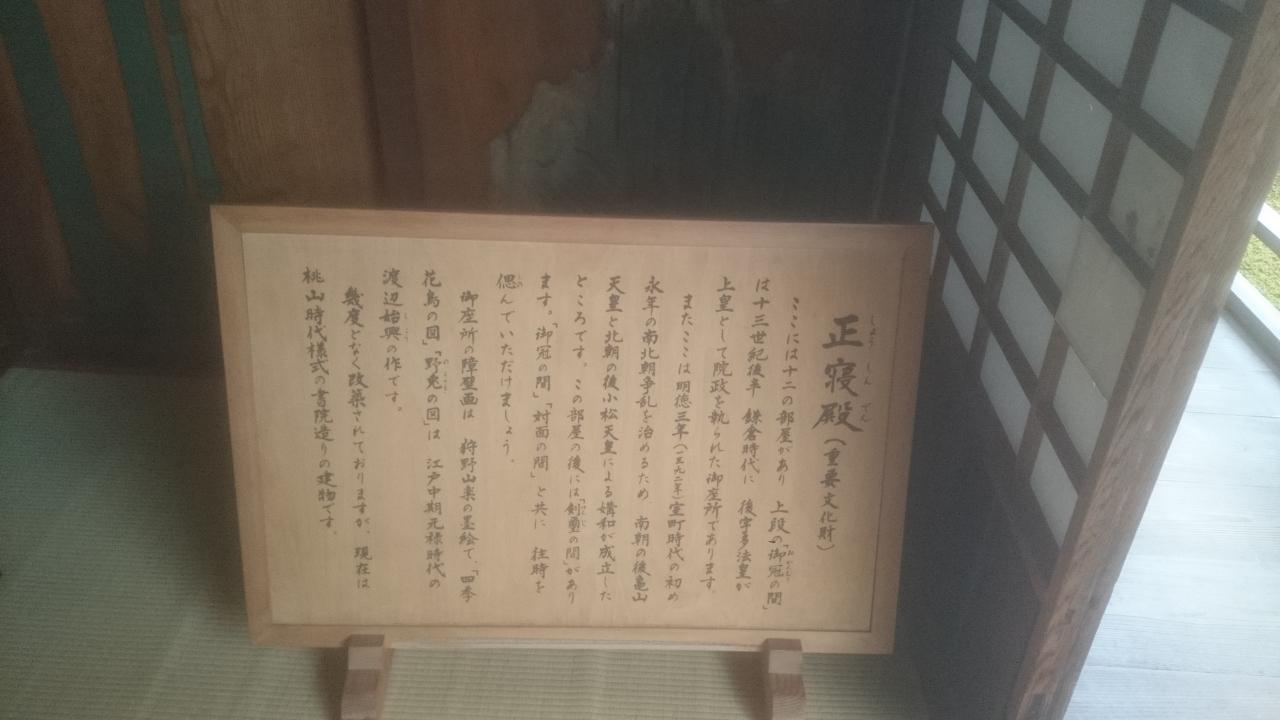 正寝殿(重要文化財)
ここには十二の部屋があり 上段の「御冠の間」
は十三世紀後半 鎌倉時代に 後宇多法皇が
上皇として院政を執られた御座所であります。
またここは明徳三年(一三九二年)室町時代の初め
永年の南北朝争乱を治めるため 南朝の後亀山
天皇と北朝の後小松天皇による媾和が成立した
ところです。この部屋の後には「剣璽の間」があり
ます。「御冠の間」「対面の間」と共に 往時を
偲んでいただけましょう。
御座所の障壁画は 狩野山楽の墨絵で、「四季
花鳥の図」「野兎の図」は 江戸中期元禄時代の
渡辺始興の作です。
幾度となく改築されておりますが、現在は
桃山時代様式の書院造りの建物です。